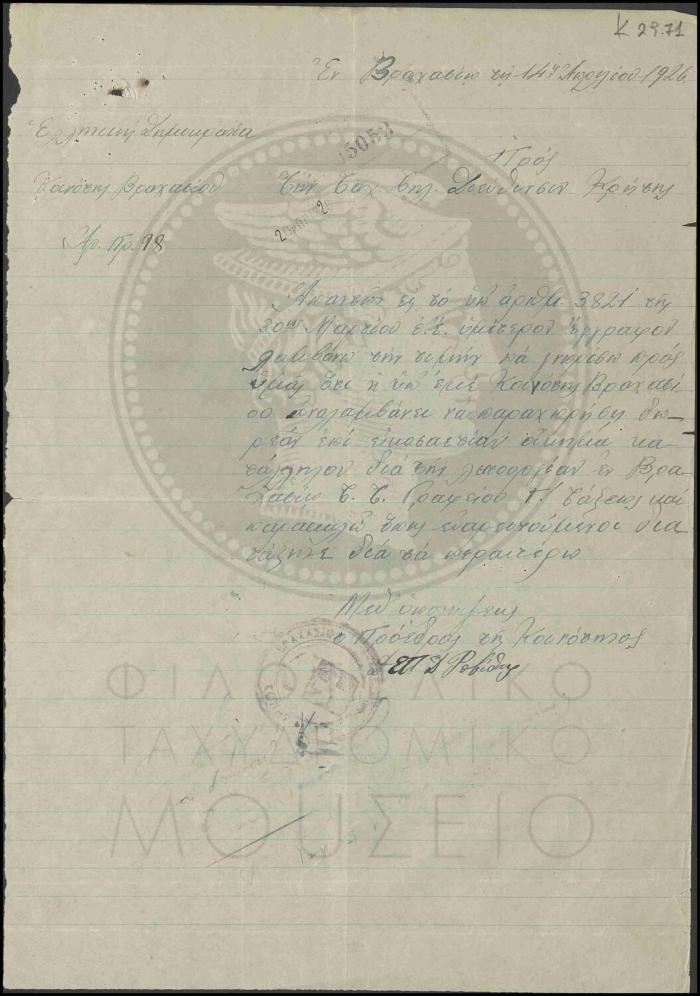 K 29.71
Ἐν Βραχασίῳ τῇ 14ῃ Ἀπριλίου 1926
Ἑλληνικὴ Δημοκρατία
5053
Πρὸς
Κοινότης Βραχασίου
Τὴν Ταχ. Τηλ. Διεύθυνσιν Κρήτης
Ἀρ. Πρ. 98
Ἀπαντῶν εἰς τὸ ὑπ' ἀριθμ. 3821 τῆς
30ης Μαρτίου ἐ.ἔ. ὑμέτερον ἔγγραφον
λαμβάνω τὴν τιμὴν νὰ γνωρίσω πρὸς
ὑμᾶς ὅτι ἡ ὑπ' ἐμὲ Κοινότης Βραχασί
ου ἀναλαμβάνει νὰ παραχωρήσῃ δω-
ρεὰν ἐπὶ εἰκοσαετίαν οἴκημα κα
τάλληλον διὰ τὴν λειτουργίαν ἐν Βρα
χασίῳ Τ. Τ. Γραφείου Γ' τάξεως καὶ
παρακαλῶ ὅπως εὐαρεστούμενοι δια
τάξητε διὰ τὰ περαιτέρω
Μεθ' ὑπολήψεως
ὁ Πρόεδρος τῆς Κοινότητος
ΒΡΑΧΑΣΙΟΥ
ΦΙΛΟΤΕΛΙΚΟ
ΤΑΧΥΔΡΟΜΙΚΟ
ΜΟΥΣΕΙΟ